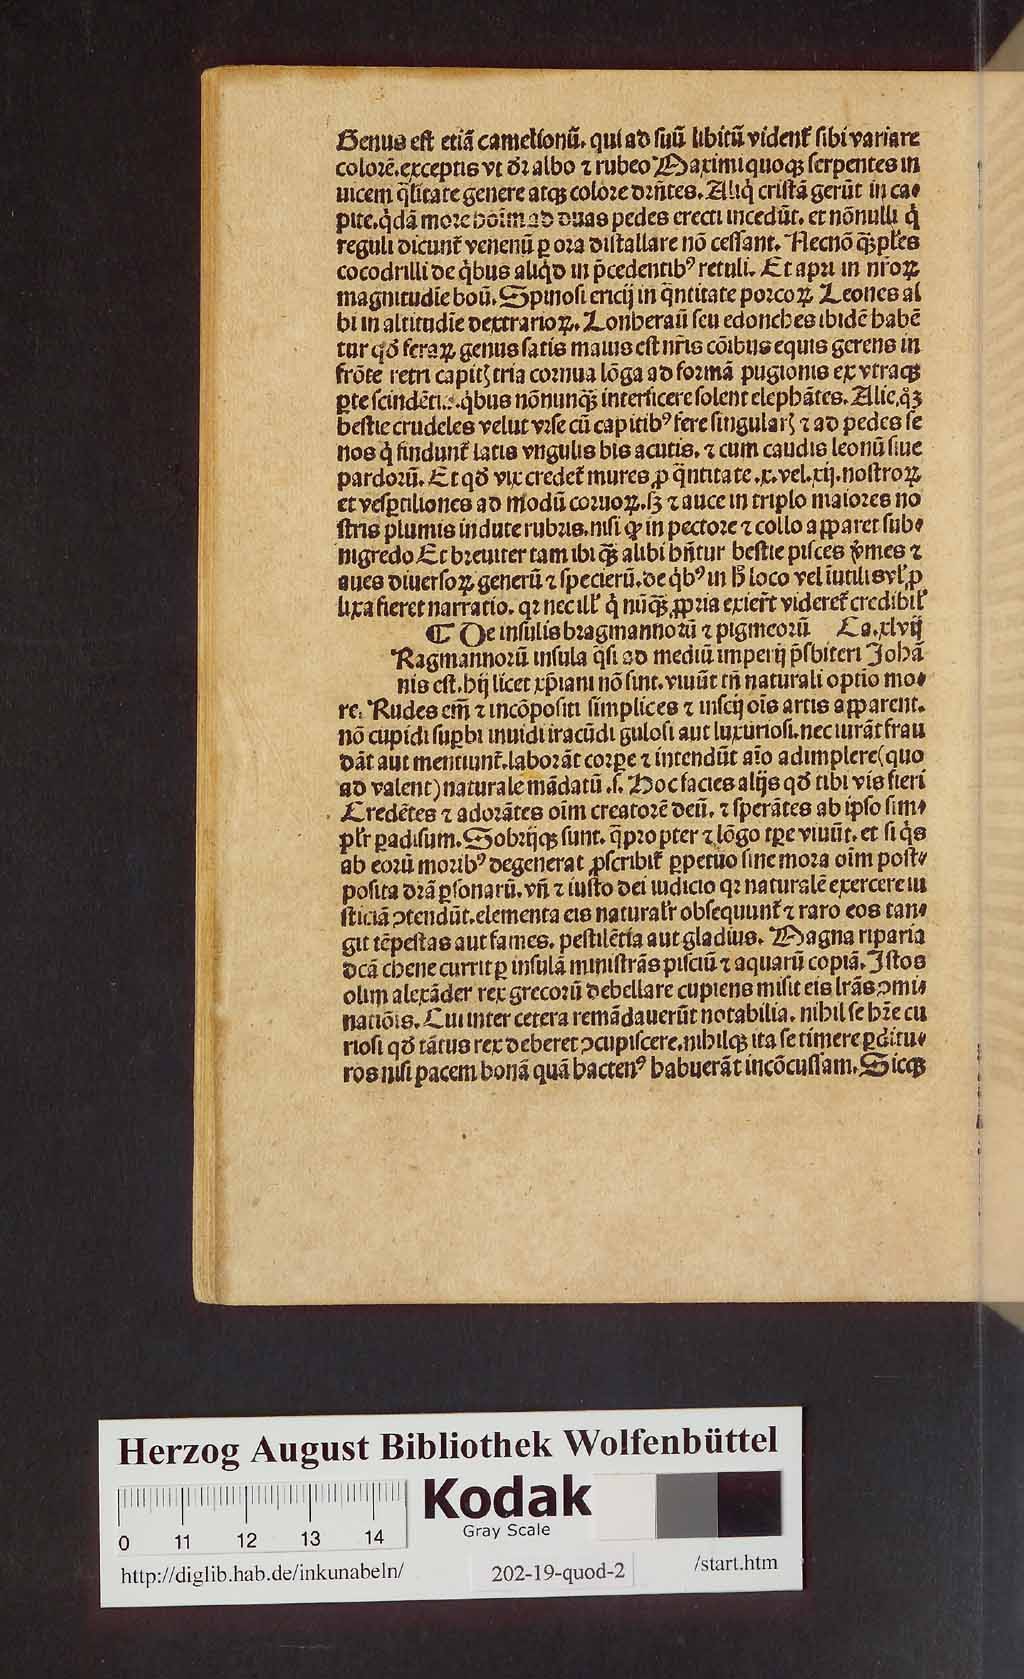 Genus est etiā camelionū. qui ad suū libitū vident᷑ sibi variare
colorē. exceptis vt dr̄ albo ⁊ rubeo Maximi quoqꝫ serpentes in
uicem q̄litate genere atqꝫ colore drn̄tes. Aliq̇ cristā gerūt in ca⸗
pite. q̇dā more hoīm ad duas pedes erecti incedūt. et nōnulli q̇
reguli dicunt᷑ venenū ꝑ ora distallare nō cessant. Necnō qꝫ̄ pl̄es
cocodrilli de q̇bus aliq̇d in p̄cedentibꝰ retuli. Et apri in nr̄oꝝ
magnitudīe boū. Spinosi ericij in q̄ntitate porcoꝝ. Leones al
bi in altitudīe dextrarioꝝ. Lonheraū seu edonches ibidē habē
tur qd̄ feraꝝ genus satis maius est nr̄is cōibus equis gerens in
frōte retri capitꝭ tria cornua lōga ad formā pugionis ex vtraqꝫ
ꝑte scindēti. q̇bus nōnunqꝫ̄ interficere solent elephātes. Alie q̊ꝫ
bestie crudeles velut vrse cū capitibꝰ fere singularꝭ ⁊ ad pedes se
nos q̇ findunt᷑ latis vngulis bis acutis. ⁊ cum caudis leonū siue
pardorū. Et qd̄ vix credet᷑ mures ꝓ q̄ntitate .x. vel .xij. nostroꝝ
et vesꝑtiliones ad modū coruoꝝ. sꝫ ⁊ auce in triplo maiores no
stris plumis indute rubris. nisi ꝙ in pectore ⁊ collo apparet sub⸗
nigredo Et breuiter tam ibi qꝫ̄ alibi hn̄tur bestie pisces v̓mes ⁊
aues diuersoꝝ generū ⁊ specierū. de q̇bꝰ in h̄ loco vel īutilis vl̓ ꝓ
lixa fieret narratio. qr nec ill̓ q̇ nūqꝫ̄ ꝓpria exier̄t videret᷑ credibil̓
¶ De insulis bragmannorū ⁊ pigmeorū Ca. xlvij
Ragmannorū insula q̄si ad mediū imperij p̄sbiteri Johā
nis est. hij licet xp̄iani nō sint. viuūt tn̄ naturali optio mo⸗
re. Rudes em̄ ⁊ incōpositi simplices ⁊ inscij oīs artis apparent.
nō cupidi suꝑbi inuidi iracūdi gulosi aut luxuriosi. nec iurāt frau
dāt aut mentiunt᷑. laborāt corꝑe ⁊ intendūt aīo adimplere (quo
ad valent) naturale mādatū .s. Hoc facies alijs qd̄ tibi vis fieri
Credētes ⁊ adorātes oīm creatorē deū. ⁊ sperātes ab ipso sim⸗
pl̓r ꝑadisum. Sobrijqꝫ sunt. q̄propter ⁊ lōgo tꝑe viuūt. et si q̇s
ab eorū moribꝰ degenerat ꝓscribit᷑ ꝑpetuo sine mora oīm post⸗
posita dr̄ā ꝑsonarū. vn̄ ⁊ iusto dei iudicio qr naturalē exercere iu
sticiā ꝯtendūt. elementa eis natural̓r obsequunt᷑ ⁊ raro eos tan⸗
git tēpestas aut fames. pestilētia aut gladius. Magna riparia
dcā chene currit ꝑ insulā ministrās pisciū ⁊ aquarū copiā. Istos
olim alexāder rex grecorū debellare cupiens misit eis lr̄as ꝯmi⸗
natiōis. Cui inter cetera remādauerūt notabilia. nihil se hr̄e cu
riosi qd̄ tātus rex deberet ꝯcupiscere. nihilqꝫ ita se timere ꝑditu⸗
ros nisi pacem bonā quā hactenꝰ habuerāt incōcussam. Sicqꝫ
Herzog August Bibliothek Wolfenbüttel
Kodak
Gray Scale
0 11 12 13 14
http://diglib.hab.de/inkunabeln/ 202-19-quod-2 /start.htm